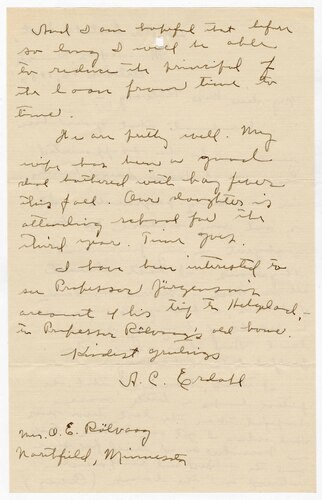 And I am hopeful that before
so long I will be able
to reduce the principal of
the loan from time to
time.
We are pretty well. My
wife has been a good
deal bothered with hay fever
this fall. Our daughter is
attending school for the
third year. Time goes.
I have been interested to
see Professor Jorgenson's
account of his trip to Helgeland,—
to Professor Rölvaag's old home.
Kindest greetings
A. C. Erdahl
Mrs. O. E. Rölvaag
Northfield, Minnesota